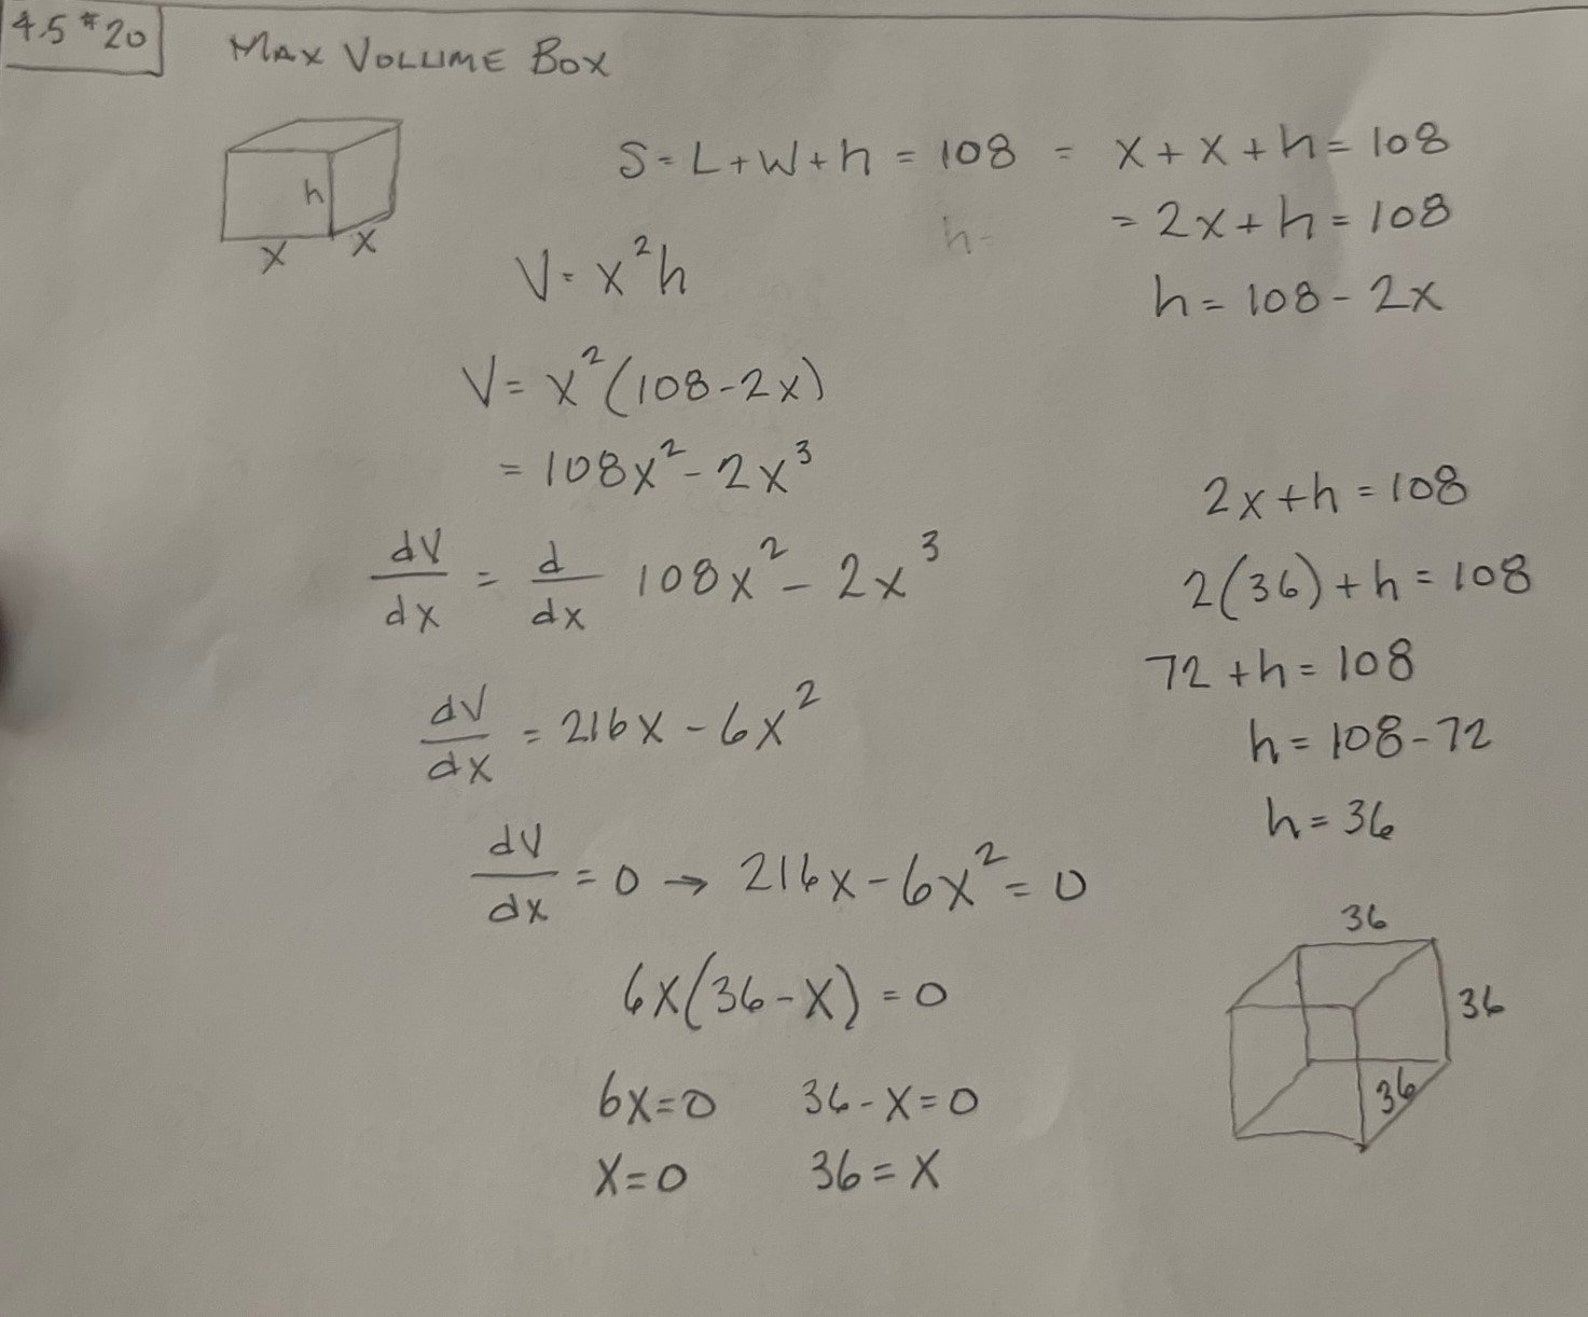 4.5 #20
MAX VOLUME BOX
h
x x
S = L + W + h = 108 = x + x + h = 108
h =
= 2x + h = 108
h = 108 - 2x
V = x²h
V = x²(108 - 2x)
= 108x² - 2x³
dV/dx = d/dx 108x² - 2x³
dV/dx = 216x - 6x²
dV/dx = 0 → 216x - 6x² = 0
6x(36 - x) = 0
6x = 0 36 - x = 0
x = 0 36 = x
2x + h = 108
2(36) + h = 108
72 + h = 108
h = 108 - 72
h = 36
36
36
36